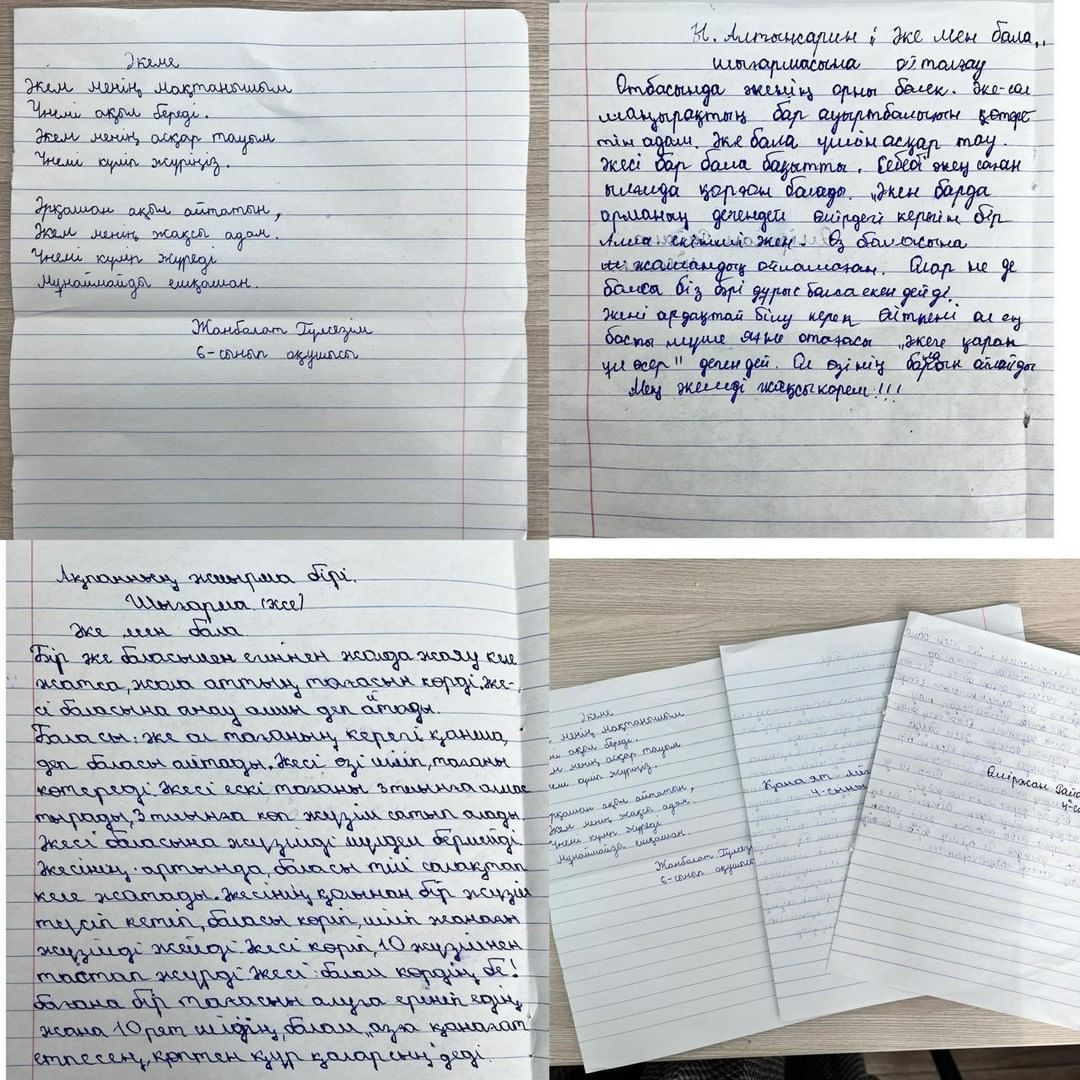 Әкеме
Әкем менің мақтанышым
Үнемі ақыл береді.
Әкем менің асқар тауым
Үнемі күліп жүріңіз.
Әрқашан ақыл айтатын,
Әкем менің жақсы адам.
Үнемі күліп жүреді
Мұнаймайды ешқашан.
Жанбалат Гүлсезім
6-сынып оқушысы
Ы. Алтынсарин "Әке мен бала"
шығармасына ой толғау
Отбасында әкенің орны бөлек. Әке-ол
шаңырақтың бар ауыртбалығын көтере
тін адам. Әке бала үшін асқар тау.
Әкесі бар бала бақытты. Себебі әкең саған
ылғида қорған болады. "Әкең барда
арманың дегендей өмірдегі керегің бір
Алла екіншісі әкең. Өз баласына
жамандық ойламаған. Олар не де
болса біз бәрі дұрыс болса екен дейді.
Әкені ардақтай білу керек Өйткені ол ең
басты мүше Яғни отағасы "әкеге қарап
ұл өсер" дегендей. Ол өзінің барын аямайды
Мен әкемді жақсы көрем!!!
Ақпанның жиырма бірі.
Шығарма (эссе)
Әке мен бала
Бір әке баласымен егіннен жолда жаяу келе
жатса, жола аттың тағасын көрді. Әке-
сі баласына анау алшы деп айтады.
Баласы: әке ол тағаның керегі қанша,
деп баласы айтады. Әкесі өзі иіліп, тағаны
көтереді. Әкесі ескі тағаны 3 тиынға алмас
тырады, 3 тиынға көп жүзім сатып алады.
Әкесі баласына жүзімді мүлдем бермейді
Әкесінің артында, баласы тілі салақтап
келе жатады. Әкесінің қолынан бір жүзім
түсіп кетіп, баласы көріп, иіліп жаңағы
жүзімді жейді. Әкесі көріп, 10 жүзімнен
тастап жүрді. Әкесі: балам көрдің бе!
бағана бір тағасын алуға ерініп едің,
жаңа 10 рет иілдің, балам "азға қанағат
етпесең, көптен құр қаларсың" деді.
Әкеме
менің мақтанышым
ақыл береді.
менің асқар тауым
күліп жүріңіз.
Әрқашан ақыл айтатын,
Әкем менің жақсы адам.
Үнемі күліп жүреді
Мұнаймайды ешқашан.
Жанбалат Гүлсез
6-сынып оқушы
Қанаят
4-сынып
Өмірхан
4-с